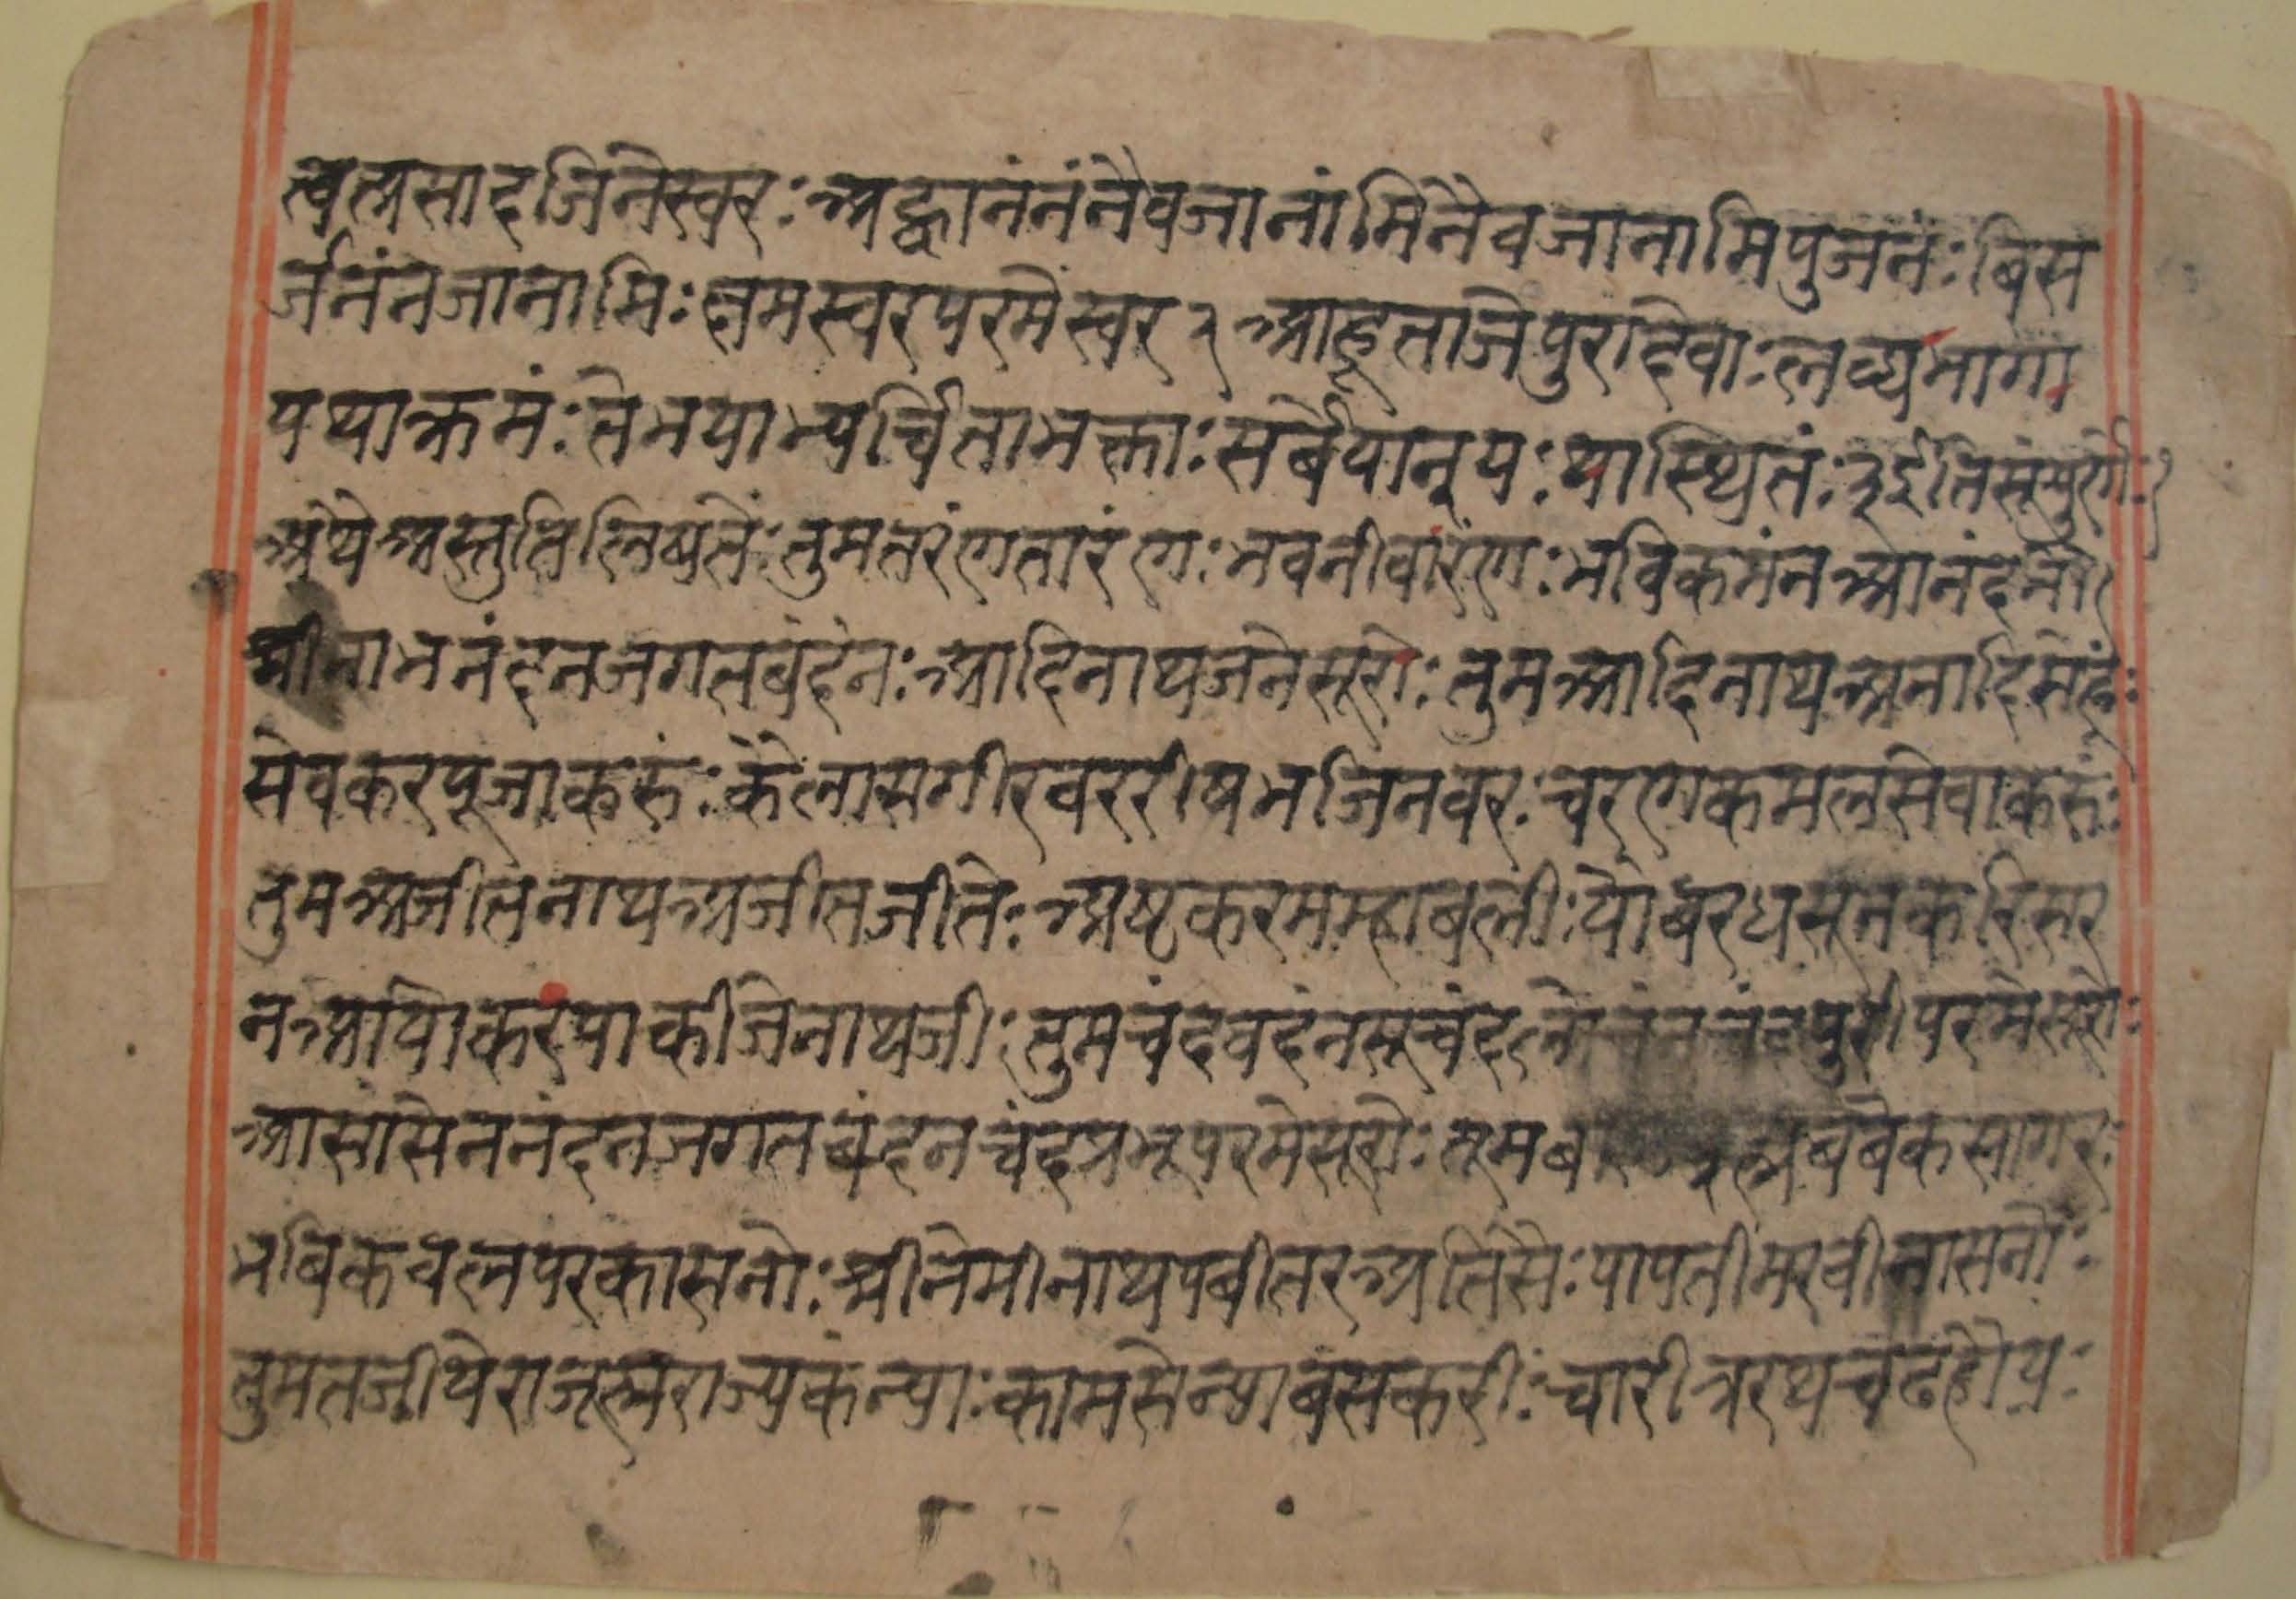 त्वत्प्रसाद जिनेस्वर: अह्वानंनं नैव जानांमि नैव जानामि पुजनं: बिस
र्जनं न जानामि: छमस्वर परमेस्वर २ आहूता जे पुरा देवा: लब्ध भागा
यथाक्रमं: ते मयाभ्यर्चिता भक्ता: सर्बे यानूय: थास्थितं: ३ ईति संपुर्ण:
अथे अस्तुति लिष्यते: तुम तरंण तारंण: भव नीवारंण: भविक मंन आनंदनो
श्री नाभनंदन जगत बंदंन: आदिनाथ जनेसूरो: तुम आदिनाथ अनादि सेहूं:
सेवकर पूजा करुं: कैलास गीरवर रीषभ जिनवर: चरण कमल सेवा करुं:
तुम अजीतनाथ अजीत जीते: अष्ट करम म्हाबली: यो बरध सून करि सर
न आयो करपा कीजे नाथजी: तुम चंदवदंन सूचंद पुरी परमेसूरो:
आसांसेन नंदन जगत बंदन चंद प्रभू परमेसूरो: तूम बबेक सागर:
भबिक वल परकासनो: श्री नेमीनाथ पबीतर अतिसै: पाप तीमर वीनासनो:
तुम तजी थे राजूल राज्य कंन्या: काम सेन्या बस करी: चारीत्र रथ चढ होय: